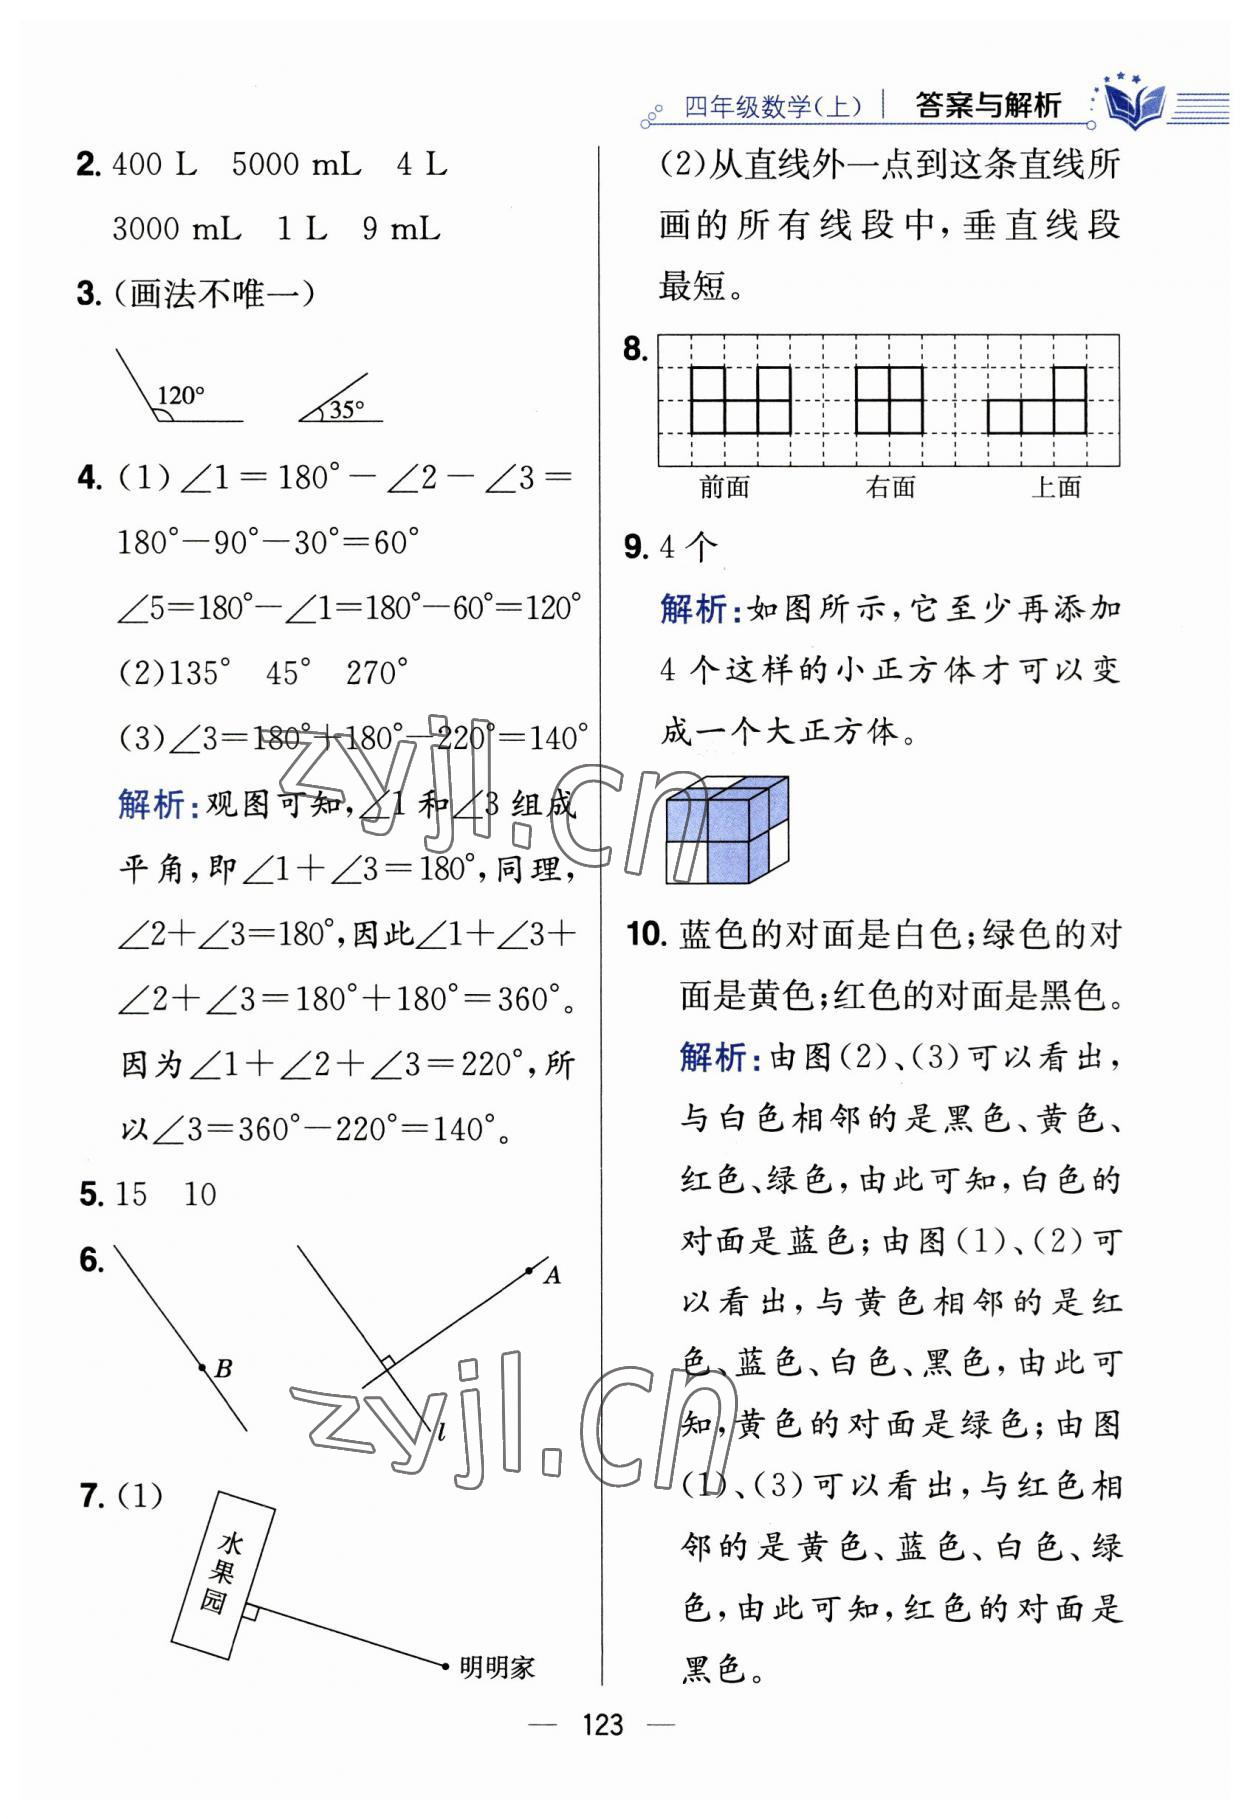 四年级数学(上) 答案与解析
2. 400 L 5000 mL 4 L
3000 mL 1 L 9 mL
3. (画法不唯一)
120° 35°
4. (1)∠1=180°-∠2-∠3=
180°-90°-30°=60°
∠5=180°-∠1=180°-60°=120°
(2)135° 45° 270°
(3)∠3=180°+180°-220°=140°
解析:观图可知,∠1和∠3组成
平角,即∠1+∠3=180°,同理,
∠2+∠3=180°,因此∠1+∠3+
∠2+∠3=180°+180°=360°。
因为∠1+∠2+∠3=220°,所
以∠3=360°-220°=140°。
5. 15 10
6.
B
A
l
7. (1)
水果园
明明家
(2)从直线外一点到这条直线所
画的所有线段中,垂直线段
最短。
8.
前面 右面 上面
9. 4个
解析:如图所示,它至少再添加
4个这样的小正方体才可以变
成一个大正方体。
10. 蓝色的对面是白色;绿色的对
面是黄色;红色的对面是黑色。
解析:由图(2)、(3)可以看出,
与白色相邻的是黑色、黄色、
红色、绿色,由此可知,白色的
对面是蓝色;由图(1)、(2)可
以看出,与黄色相邻的是红
色、蓝色、白色、黑色,由此可
知,黄色的对面是绿色;由图
(1)、(3)可以看出,与红色相
邻的是黄色、蓝色、白色、绿
色,由此可知,红色的对面是
黑色。
— 123 —
zyjl.cn
zyjl.cn